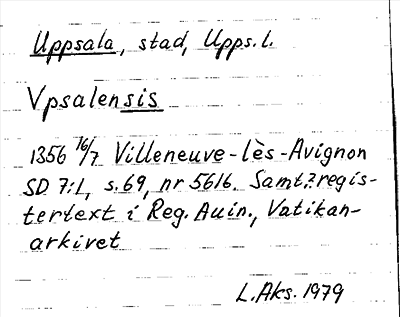 Uppsala, stad, Upps.l.
Vpsalensis
1356 16/7 Villeneuve-lès-Avignon
SD 7:1, s.69, nr 5616. Samt? regis-
tertext i Reg. Auin., Vatikan-
arkivet
L.Aks. 1979